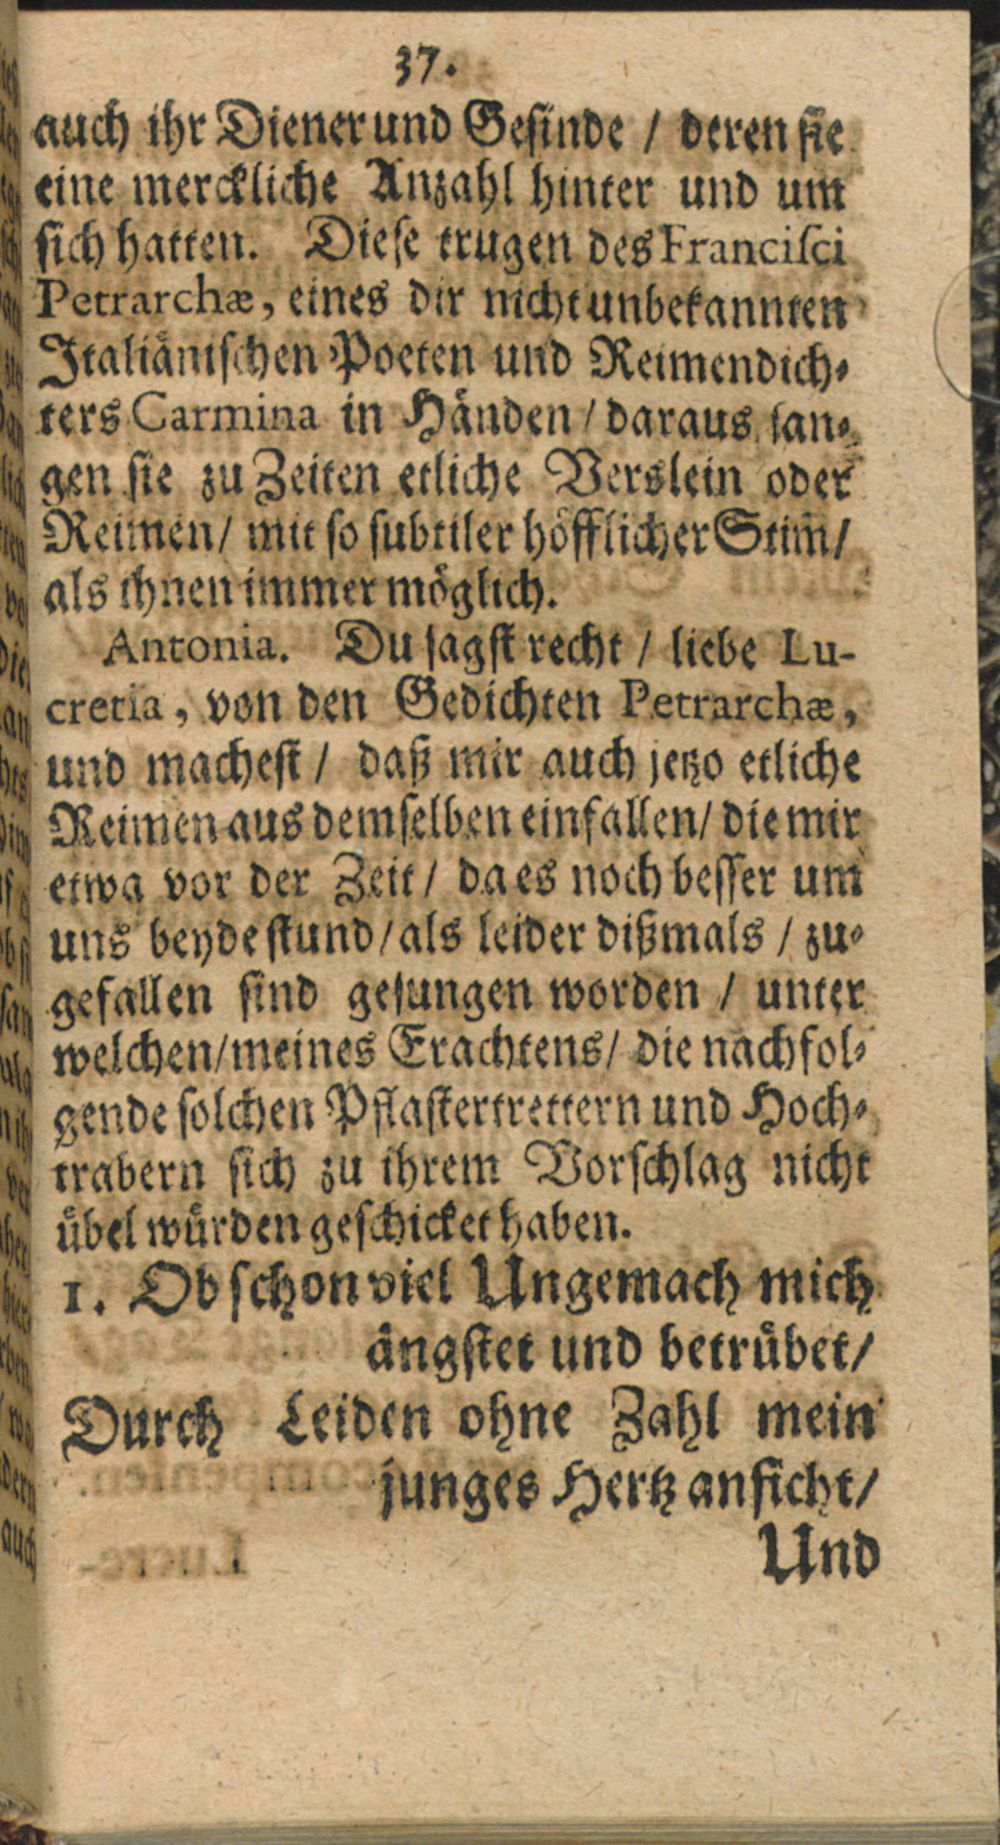 37.
auch ihr Diener und Gesinde / deren sie
eine merckliche Anzahl hinter und um
sich hatten. Diese trugen des Franciſci
Petrarchæ, eines dir nicht unbekannten
Italiänischen Poeten und Reimendich-
ters Carmina in Händen / daraus san-
gen sie zu Zeiten etliche Verslein oder
Reimen / mit so subtiler höfflicher Stim̄ /
als ihnen immer möglich.
Antonia. Du sagst recht / liebe Lu-
cretia, von den Gedichten Petrarchæ,
und machest / daß mir auch jetzo etliche
Reimen aus demselben einfallen / die mir
etwa vor der Zeit / da es noch besser um
uns beyde stund / als leider dißmals / zu-
gefallen sind gesungen worden / unter
welchen / meines Erachtens / die nachfol-
gende solchen Pflastertrettern und Hoch-
trabern sich zu ihrem Vorschlag nicht
übel würden geschicket haben.
1. Ob schon viel Ungemach mich
ängstet und betrübet /
Durch Leiden ohne Zahl mein
junges Hertz anficht /
Und